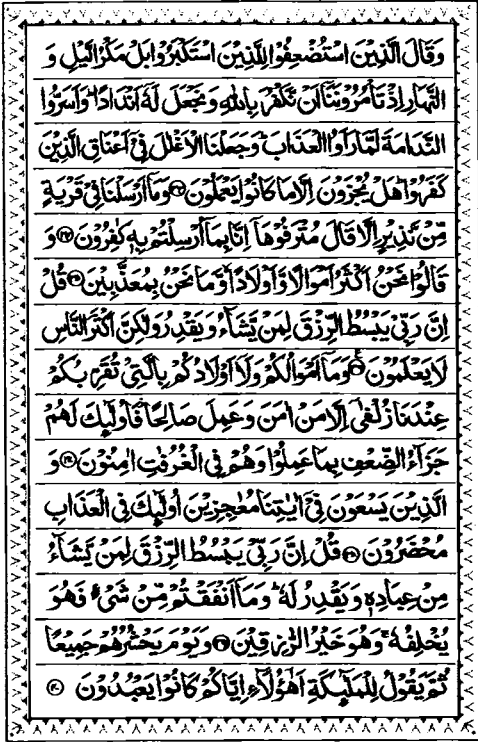 وَقَالَ الَّذِيْنَ اسْتُضْعِفُوْا لِلَّذِيْنَ اسْتَكْبَرُوْا بَلْ مَكْرُ الَّيْلِ وَ
النَّهَارِ اِذْ تَاْمُرُوْنَنَاۤ اَنْ نَّكْفُرَ بِاللّٰهِ وَنَجْعَلَ لَهٗۤ اَنْدَادًا ؕ وَاَسَرُّوا
النَّدَامَةَ لَمَّا رَاَوُا الْعَذَابَ ؕ وَجَعَلْنَا الْاَغْلٰلَ فِیْۤ اَعْنَاقِ الَّذِيْنَ
كَفَرُوْا ؕ هَلْ يُجْزَوْنَ اِلَّا مَا كَانُوْا يَعْمَلُوْنَ ۝۳۳ وَمَاۤ اَرْسَلْنَا فِیْ قَرْيَةٍ
مِّنْ نَّذِيْرٍ اِلَّا قَالَ مُتْرَفُوْهَاۤ اِنَّا بِمَاۤ اُرْسِلْتُمْ بِهٖ كٰفِرُوْنَ ۝۳۴ وَ
قَالُوْا نَحْنُ اَكْثَرُ اَمْوَالًا وَّ اَوْلَادًا وَّ مَا نَحْنُ بِمُعَذَّبِيْنَ ۝۳۵ قُلْ
اِنَّ رَبِّیْ يَبْسُطُ الرِّزْقَ لِمَنْ يَّشَآءُ وَ يَقْدِرُ وَلٰكِنَّ اَكْثَرَ النَّاسِ
لَا يَعْلَمُوْنَ ۝۳۶ وَمَاۤ اَمْوَالُكُمْ وَلَاۤ اَوْلَادُكُمْ بِالَّتِیْ تُقَرِّبُكُمْ
عِنْدَنَا زُلْفٰۤی اِلَّا مَنْ اٰمَنَ وَعَمِلَ صَالِحًا فَاُولٰٓئِكَ لَهُمْ
جَزَآءُ الضِّعْفِ بِمَا عَمِلُوْا وَهُمْ فِی الْغُرُفٰتِ اٰمِنُوْنَ ۝۳۷ وَ
الَّذِيْنَ يَسْعَوْنَ فِیْۤ اٰيٰتِنَا مُعٰجِزِيْنَ اُولٰٓئِكَ فِی الْعَذَابِ
مُحْضَرُوْنَ ۝۳۸ قُلْ اِنَّ رَبِّیْ يَبْسُطُ الرِّزْقَ لِمَنْ يَّشَآءُ
مِنْ عِبَادِهٖ وَ يَقْدِرُ لَهٗ ؕ وَمَاۤ اَنْفَقْتُمْ مِّنْ شَیْءٍ فَهُوَ
يُخْلِفُهٗ ۚ وَهُوَ خَيْرُ الرّٰزِقِيْنَ ۝۳۹ وَيَوْمَ يَحْشُرُهُمْ جَمِيْعًا
ثُمَّ يَقُوْلُ لِلْمَلٰٓئِكَةِ اَهٰۤؤُلَآءِ اِيَّاكُمْ كَانُوْا يَعْبُدُوْنَ ۝۴۰